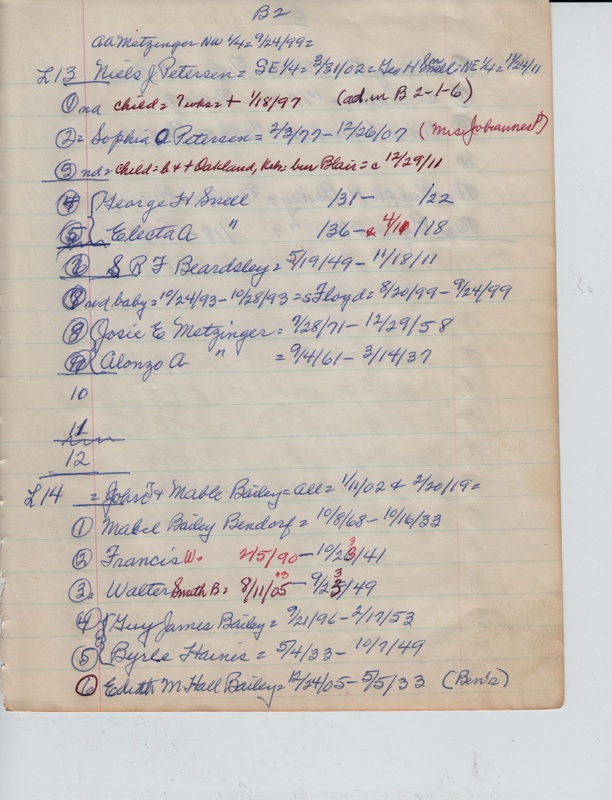 B2
AA Metzinger NW 1/4 = 9/24/99 =
L13 Niels J Petersen = SE 1/4 = 3/31/02 = Geo H Snell. NE 1/4 = 11/24/11
① nd child = 7 wks = + 1/18/97 (ad. in B 2-1-6)
② = Sophia O Petersen = 2/3/77 - 12/26/07 (Mrs Johannes P)
③ nd = child = b + + Oakland, Neb = bur Blair = c 12/29/11
④ George H Snell /31 - /22
⑤ Electa A " /36 - 4/11/18
⑥ S R F Beardsley = 5/19/49 - 11/18/11
⑦ nd. baby = 10/24/93 - 10/28/93 = s Floyd = 8/20/99 - 9/24/99
⑧ Josie E Metzinger = 7/28/71 - 12/29/58
⑨ Alonzo A " = 9/4/61 - 3/14/37
10
11
12
L14 = John T + Mable Bailey = all = 1/11/02 + 2/20/19 =
① Mabel Bailey Bendorf = 10/8/68 - 10/16/33
② Francis W. 2/5/90 - 10/23/41
③ Walter Smith B = 8/11/05 - 9/23/49
④ Guy James Bailey = 9/21/96 - 2/17/53
⑤ Byrle Haines = 5/4/33 - 10/7/49
⑥ Edith M Hall Bailey = 12/24/05 - 5/5/33 (Ben's)